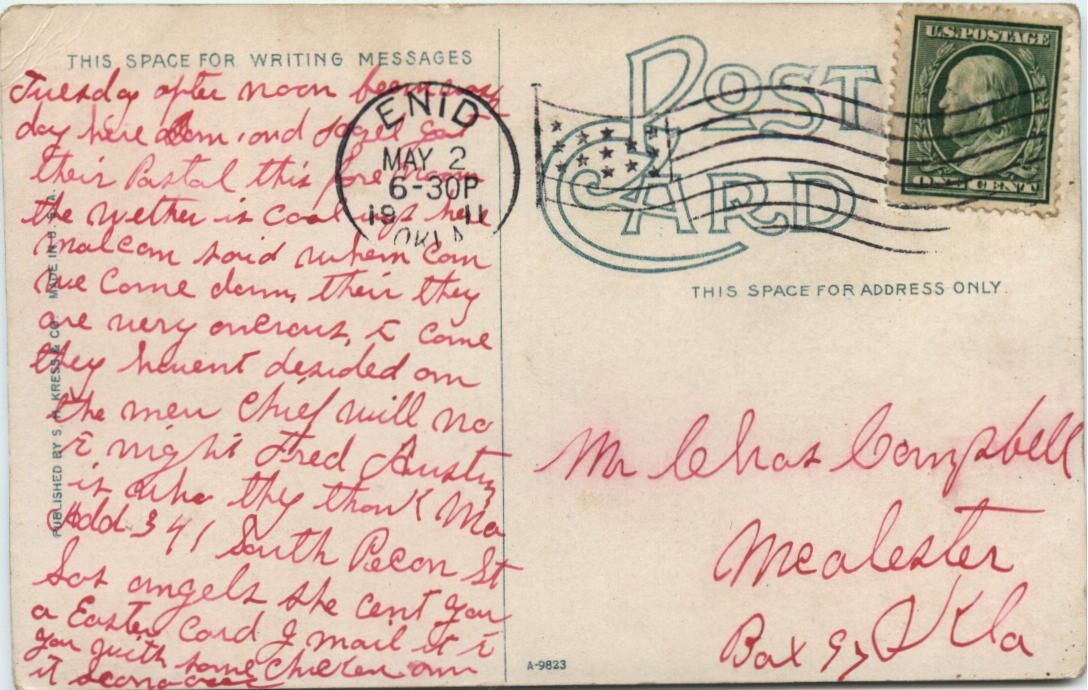 THIS SPACE FOR WRITING MESSAGES
Tuesday after noon
day here and got
their Postal this fore noon
the wether is cool here
malcom said when com
we Come down, their they
are very to Come
they havent desided on
the new Chief will no
to night Fred Austin
is who they think Ma
Add 341 South Pecan St
Los angels she cent you
a Easter Card I mail it to
you with some Chicken on
it
PUBLISHED BY S. H. KRESS & CO. MADE IN U.S.A.
ENID
MAY 2
6-30P
1911
OKLA
POST
CARD
U.S. POSTAGE
ONE CENT
THIS SPACE FOR ADDRESS ONLY.
Mr Chas Campbell
Mcalester
Box Okla
A-9823